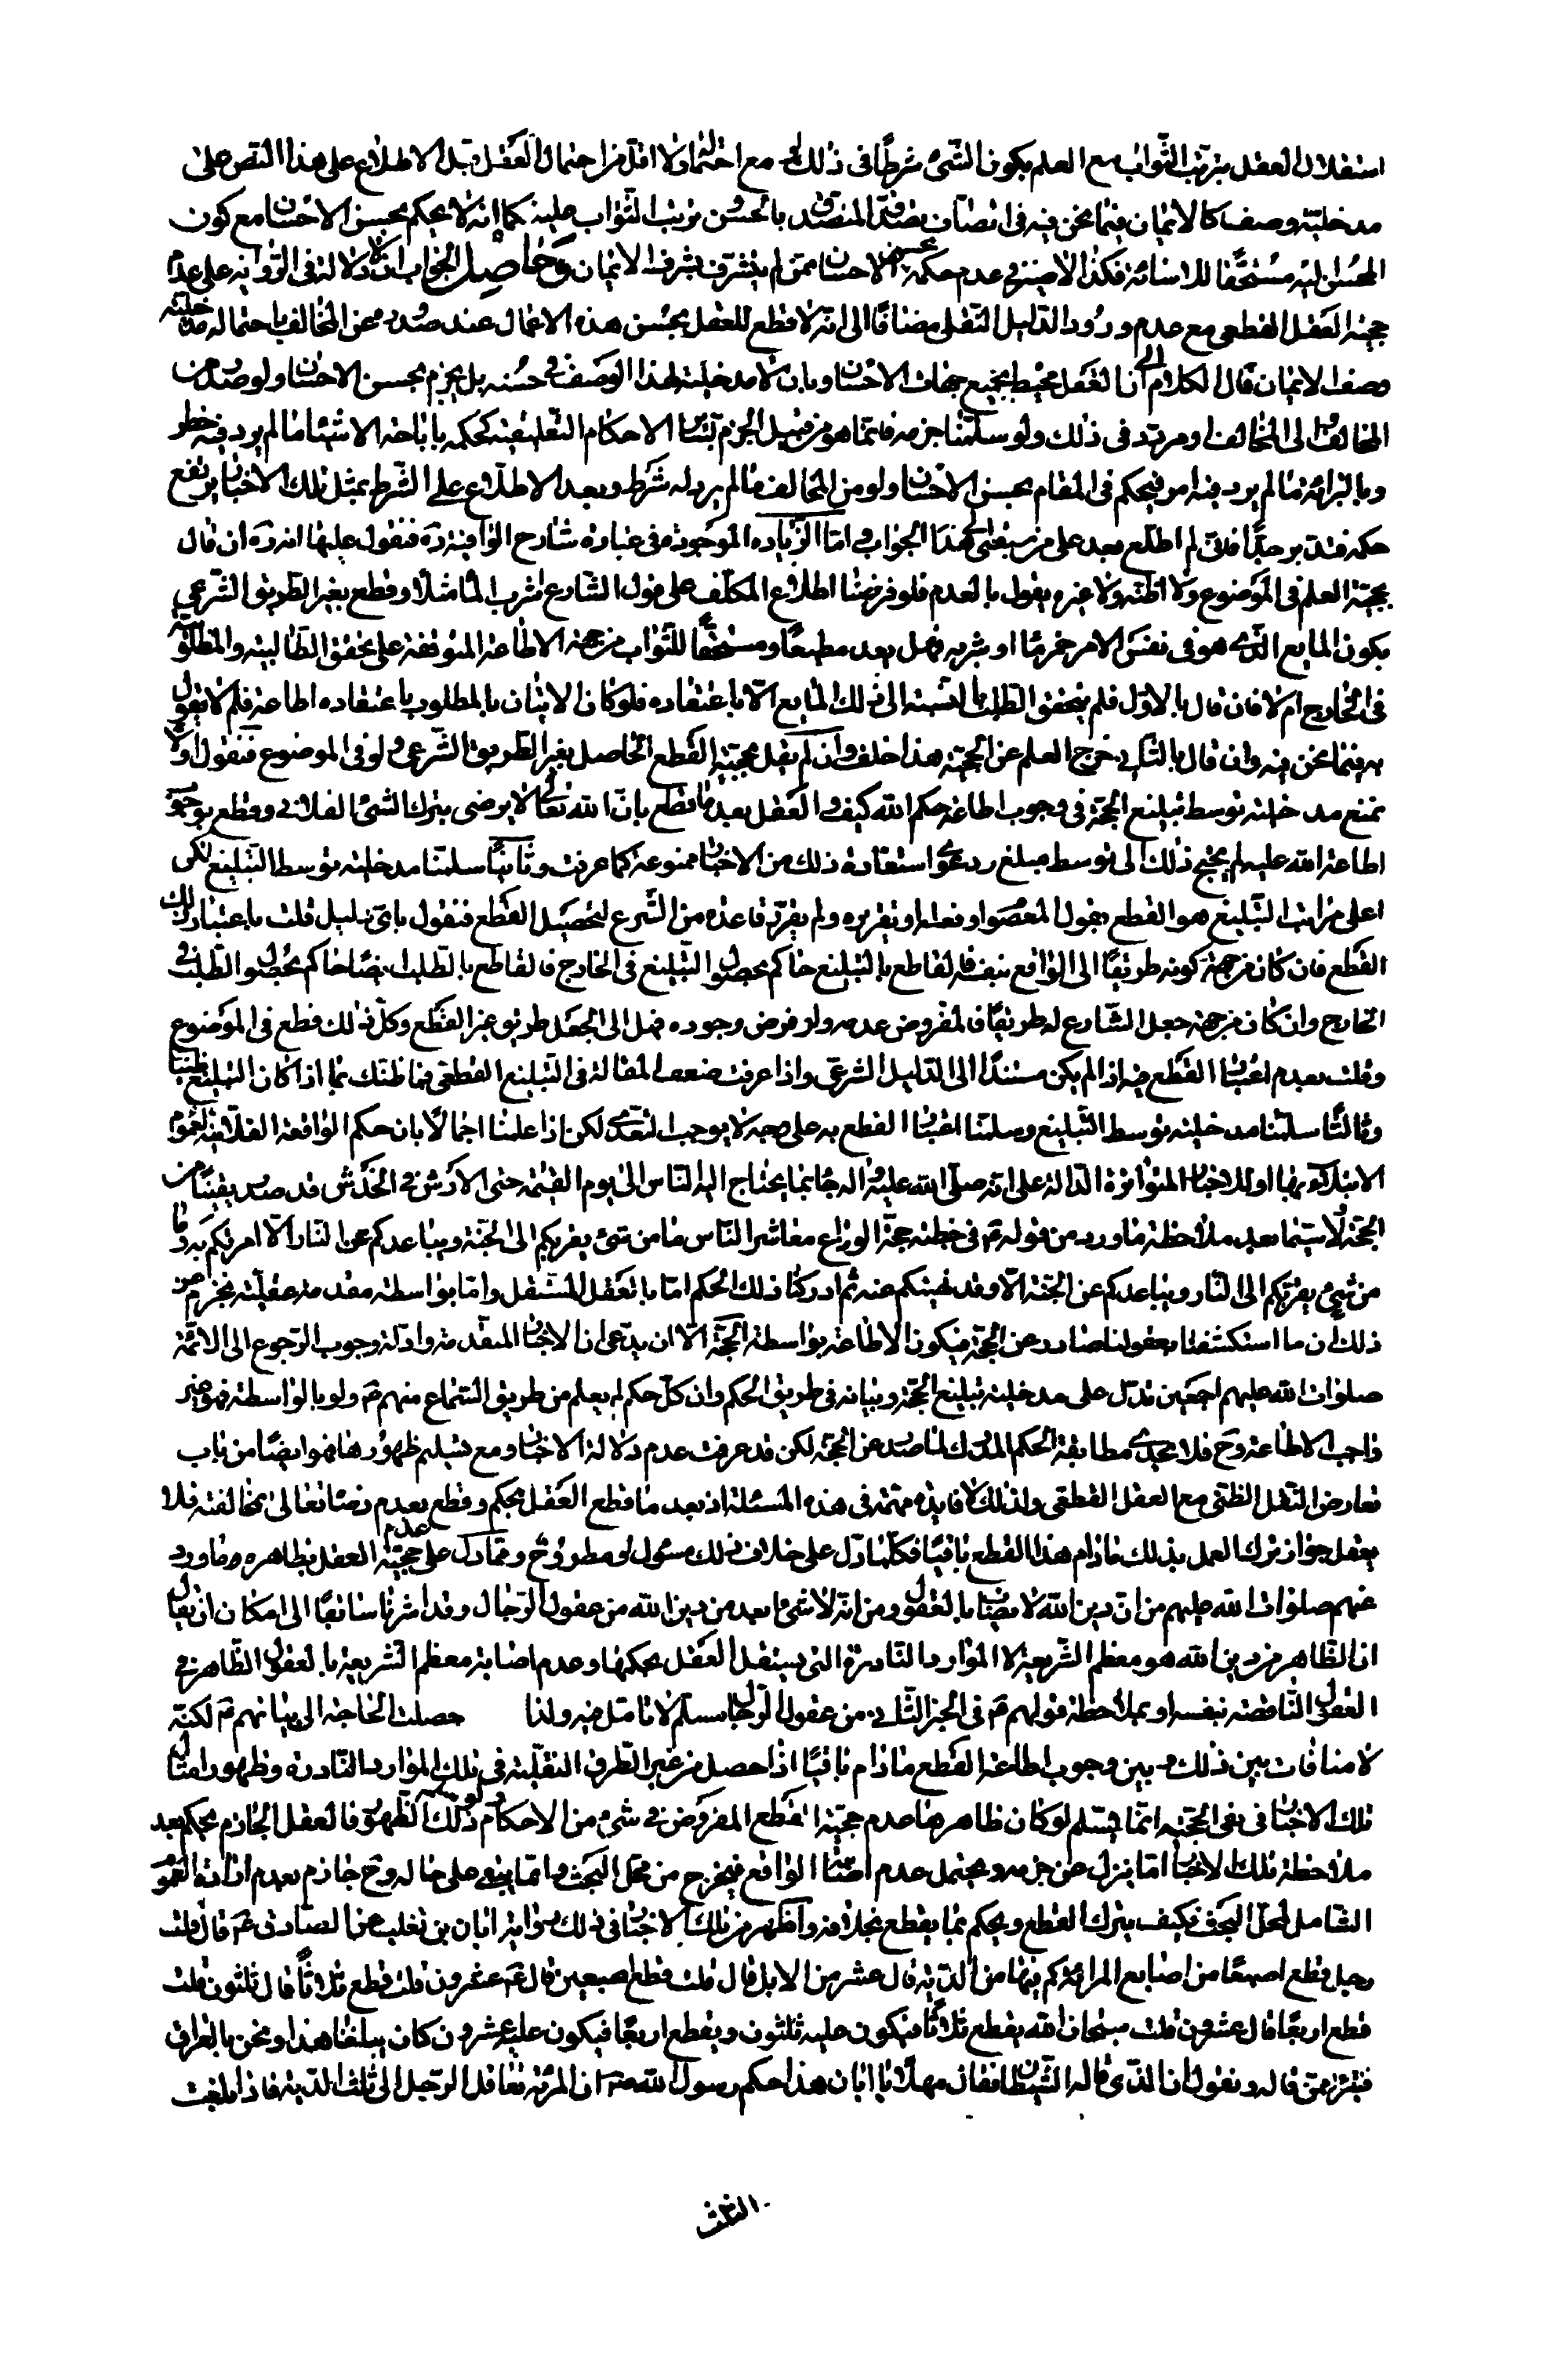 استقلال العقل بترتب الثواب مع العلم بكون الشئ شرطا فى ذلك بل مع احتماله ولا اقل من احتمال العقل قبل الاطلاع على هذا النص على
مدخلية وصف كالايمان فيما نحن فيه فى اتصاف تصدق المتصدق بالحسن وترتب الثواب عليه كما انه لا يحكم بحسن الاحسان مع كون
المحسن اليه مستحقا للاساءة فكذا لا ضير فى عدم حكمه بحسن الاحسان ممن لم يتشرف بشرف الايمان وحاصل الجواب انه لا دلالة فى الرواية على عدم
حجية العقل القطعى مع عدم ورود الدليل النقلى مضافا الى انه لا قطع للعقل بحسن هذه الاعمال عند صدوره عن المخالف باحتماله مدخلية
وصف الايمان قال الكلام الى ان العقل محيط بجميع جهات الاحسان وبان لا مدخلية لهذا الوصف فى حسنه بل يجزم بحسن الاحسان ولو صدر من
المخالف الى المخالف او مردد فى ذلك ولو سلمنا جزمه فانما هو من قبيل الجزم بسائر الاحكام التعليقية كحكمه باباحة الاشياء ما لم يرد فيه حظر
وبالبرائة ما لم يرد فيه امر فيحكم فى المقام بحسن الاحسان ولو من المخالف ما لم يرد له شرط وبعد الاطلاع على الشرط بمثل تلك الاخبار يرتفع
حكمه فتدبر جيدا فانى لم اطلع بعد على من سبقنى بهذا الجواب واما الزيادة الموجودة فى عبارة شارح الوافية ره فنقول عليها انه ره ان قال
بحجية العلم فى الموضوع ولا اظنه ولا غيره يقول بالعدم فلو فرضنا اطلاع المكلف على قول الشارع اشرب الماء مثلا وقطع بغير الطريق الشرعى
بكون المايع الذى هو فى نفس الامر خمر ماء او شربه فهل يعد مطيعا ومستحقا للثواب من جهة الاطاعة المتوقفة على تحقق الطالبية والمطلوبية
فى الخارج ام لا فان قال بالاول فلم يتحقق الطلب بالنسبة الى ذلك المايع الا باعتقاده فلو كان الاتيان بالمطلوب باعتقاده اطاعة فلم لا يقول
به فيما نحن فيه وان قال بالثانى خرج العلم عن الحجية هذا خلف وان لم يقل بحجية القطع الحاصل بغير الطريق الشرعى ولو فى الموضوع فنقول اولا
نمنع مدخلية توسط تبليغ الحجة فى وجوب اطاعة حكم الله كيف والعقل بعد ما قطع بان الله تعالى لا يرضى بترك الشئ الفلانى وقطع بوجوب
اطاعة الله عليه لم يحتج ذلك الى توسط مبلغ ودعوى استفادة ذلك من الاخبار ممنوعة كما عرفت وثانيا سلمنا مدخلية توسط التبليغ لكن
اعلى مراتب التبليغ هو القطع بقول المعصوم او فعله او تقريره ولم يقرر قاعدة من الشرع لتحصيل القطع فنقول باى دليل قلت باعتبار ذلك
القطع فان كان من جهة كونه طريقا الى الواقع بنفسه فالقاطع بالتبليغ حاكم بحصول التبليغ فى الخارج فالقاطع بالطلب ايضا حاكم بحصول الطلب فى
الخارج وان كان من جهة جعل الشارع له طريقا فالمفروض عدمه ولو فرض وجوده فهل الى الجعل طريق غير القطع وكل ذلك قطع فى الموضوع
وقلت بعدم اعتبار القطع فيه اذا لم يكن مستندا الى الدليل الشرعى واذا عرفت ضعف المقالة فى التبليغ القطعى فما ظنك بما اذا كان التبليغ ظنيا
وثالثا سلمنا مدخلية توسط التبليغ وسلمنا اعتبار القطع به على وجه لا يوجب التعدى لكن اذا علمنا اجمالا بان حكم الواقعة الفلانية لعموم
الابتلاء بها او للاخبار المتواترة الدالة على انه صلى الله عليه واله جاء بما يحتاج اليه الناس الى يوم القيمة حتى الارش فى الخدش قد صدر يقينا من
الحجة لا سيما بعد ملاحظة ما ورد من قوله ص فى خطبته حجة الوداع معاشر الناس ما من شئ يقربكم الى الجنة ويباعدكم عن النار الا امرتكم به وما
من شئ يقربكم الى النار ويباعدكم عن الجنة الا وقد نهيتكم عنه ثم ادركنا ذلك الحكم اما بالعقل المستقل واما بواسطة مقدمة عقلية نجزم من
ذلك ان ما استكشفنا بعقولنا صادر عن الحجة فيكون الاطاعة بواسطة الحجة الا ان يدعى ان الاخبار المتقدمة وادلة وجوب الرجوع الى الائمة
صلوات الله عليهم اجمعين تدل على مدخلية تبليغ الحجة وبيانه فى طريق الحكم وان كل حكم لم يعلم من طريق السماع منهم ع ولو بالواسطة فهو غير
واجب الاطاعة وح فلا يجدى مطابقة الحكم المدرك لما صدر عن الحجة لكن قد عرفت عدم دلالة الاخبار ومع تسليم ظهورها فهو ايضا من باب
تعارض النقل الظنى مع العقل القطعى ولذلك لا فايدة مهمة فى هذه المسئلة اذ بعد ما قطع العقل بحكم وقطع بعدم رضا تعالى بمخالفته فلا
يعقل جواز ترك العمل بذلك ما دام هذا القطع باقيا فكلما دل على خلاف ذلك مسئول او مطروح ومما دل على عدم حجية العقل بظاهره ما ورد
عنهم صلوات الله عليهم من ان دين الله لا يصاب بالعقول ومن انه لا شئ ابعد من دين الله من عقول الرجال وقد اشرنا سابقا الى امكان ان يقال
ان الظاهر من دين الله هو معظم الشريعة لا الموارد النادرة التى يستقل العقل بحكمها وعدم اصابة معظم الشريعة بالعقول الظاهر فى
العقول الناقصة بنفسه او بملاحظة قولهم ع فى الخبر الثانى من عقول الرجال مسلم لا تامل فيه ولذا حصلت الحاجة الى بيانهم ع لكنه
لا منافات بين ذلك وبين وجوب اطاعة القطع ما دام باقيا اذا حصل من غير الطرق النقلية فى تلك الموارد النادرة وظهور امثال
تلك الاخبار فى نفى الحجية انما يسلم لو كان ظاهرها عدم حجية القطع المفروض فى شئ من الاحكام ولو سلم ذلك الظهور فالعقل الجازم بحكم بعد
ملاحظة تلك الاخبار اما ينزل عن جزمه ويحتمل عدم اصابة الواقع فيخرج من محل البحث واما يبقى على حاله وح جازم بعدم ارادة العموم
الشامل لمحل البحث فكيف يترك القطع ويحكم بما يقطع بخلافه واظهر من تلك الاخبار فى ذلك رواية ابان بن تغلب عن الصادق ع قال قلت
رجل قطع اصبعا من اصابع المرائة كم فيها من الدية قال عشر من الابل قال قلت قطع اصبعين قال ع عشرون قلت قطع ثلاثا قال ثلثون قلت
قطع اربعا قال عشرون قلت سبحان الله يقطع ثلاثا فيكون عليه ثلثون ويقطع اربعا فيكون عليه عشرون كان يبلغنا هذا ونحن بالعراق
فنتبرء ممن قاله ونقول ان الذى قاله الشيطان فقال مهلا يا ابان هذا حكم رسول الله ص ان المرئة تعاقل الرجل الى ثلث الدية فاذا بلغت
الثلث